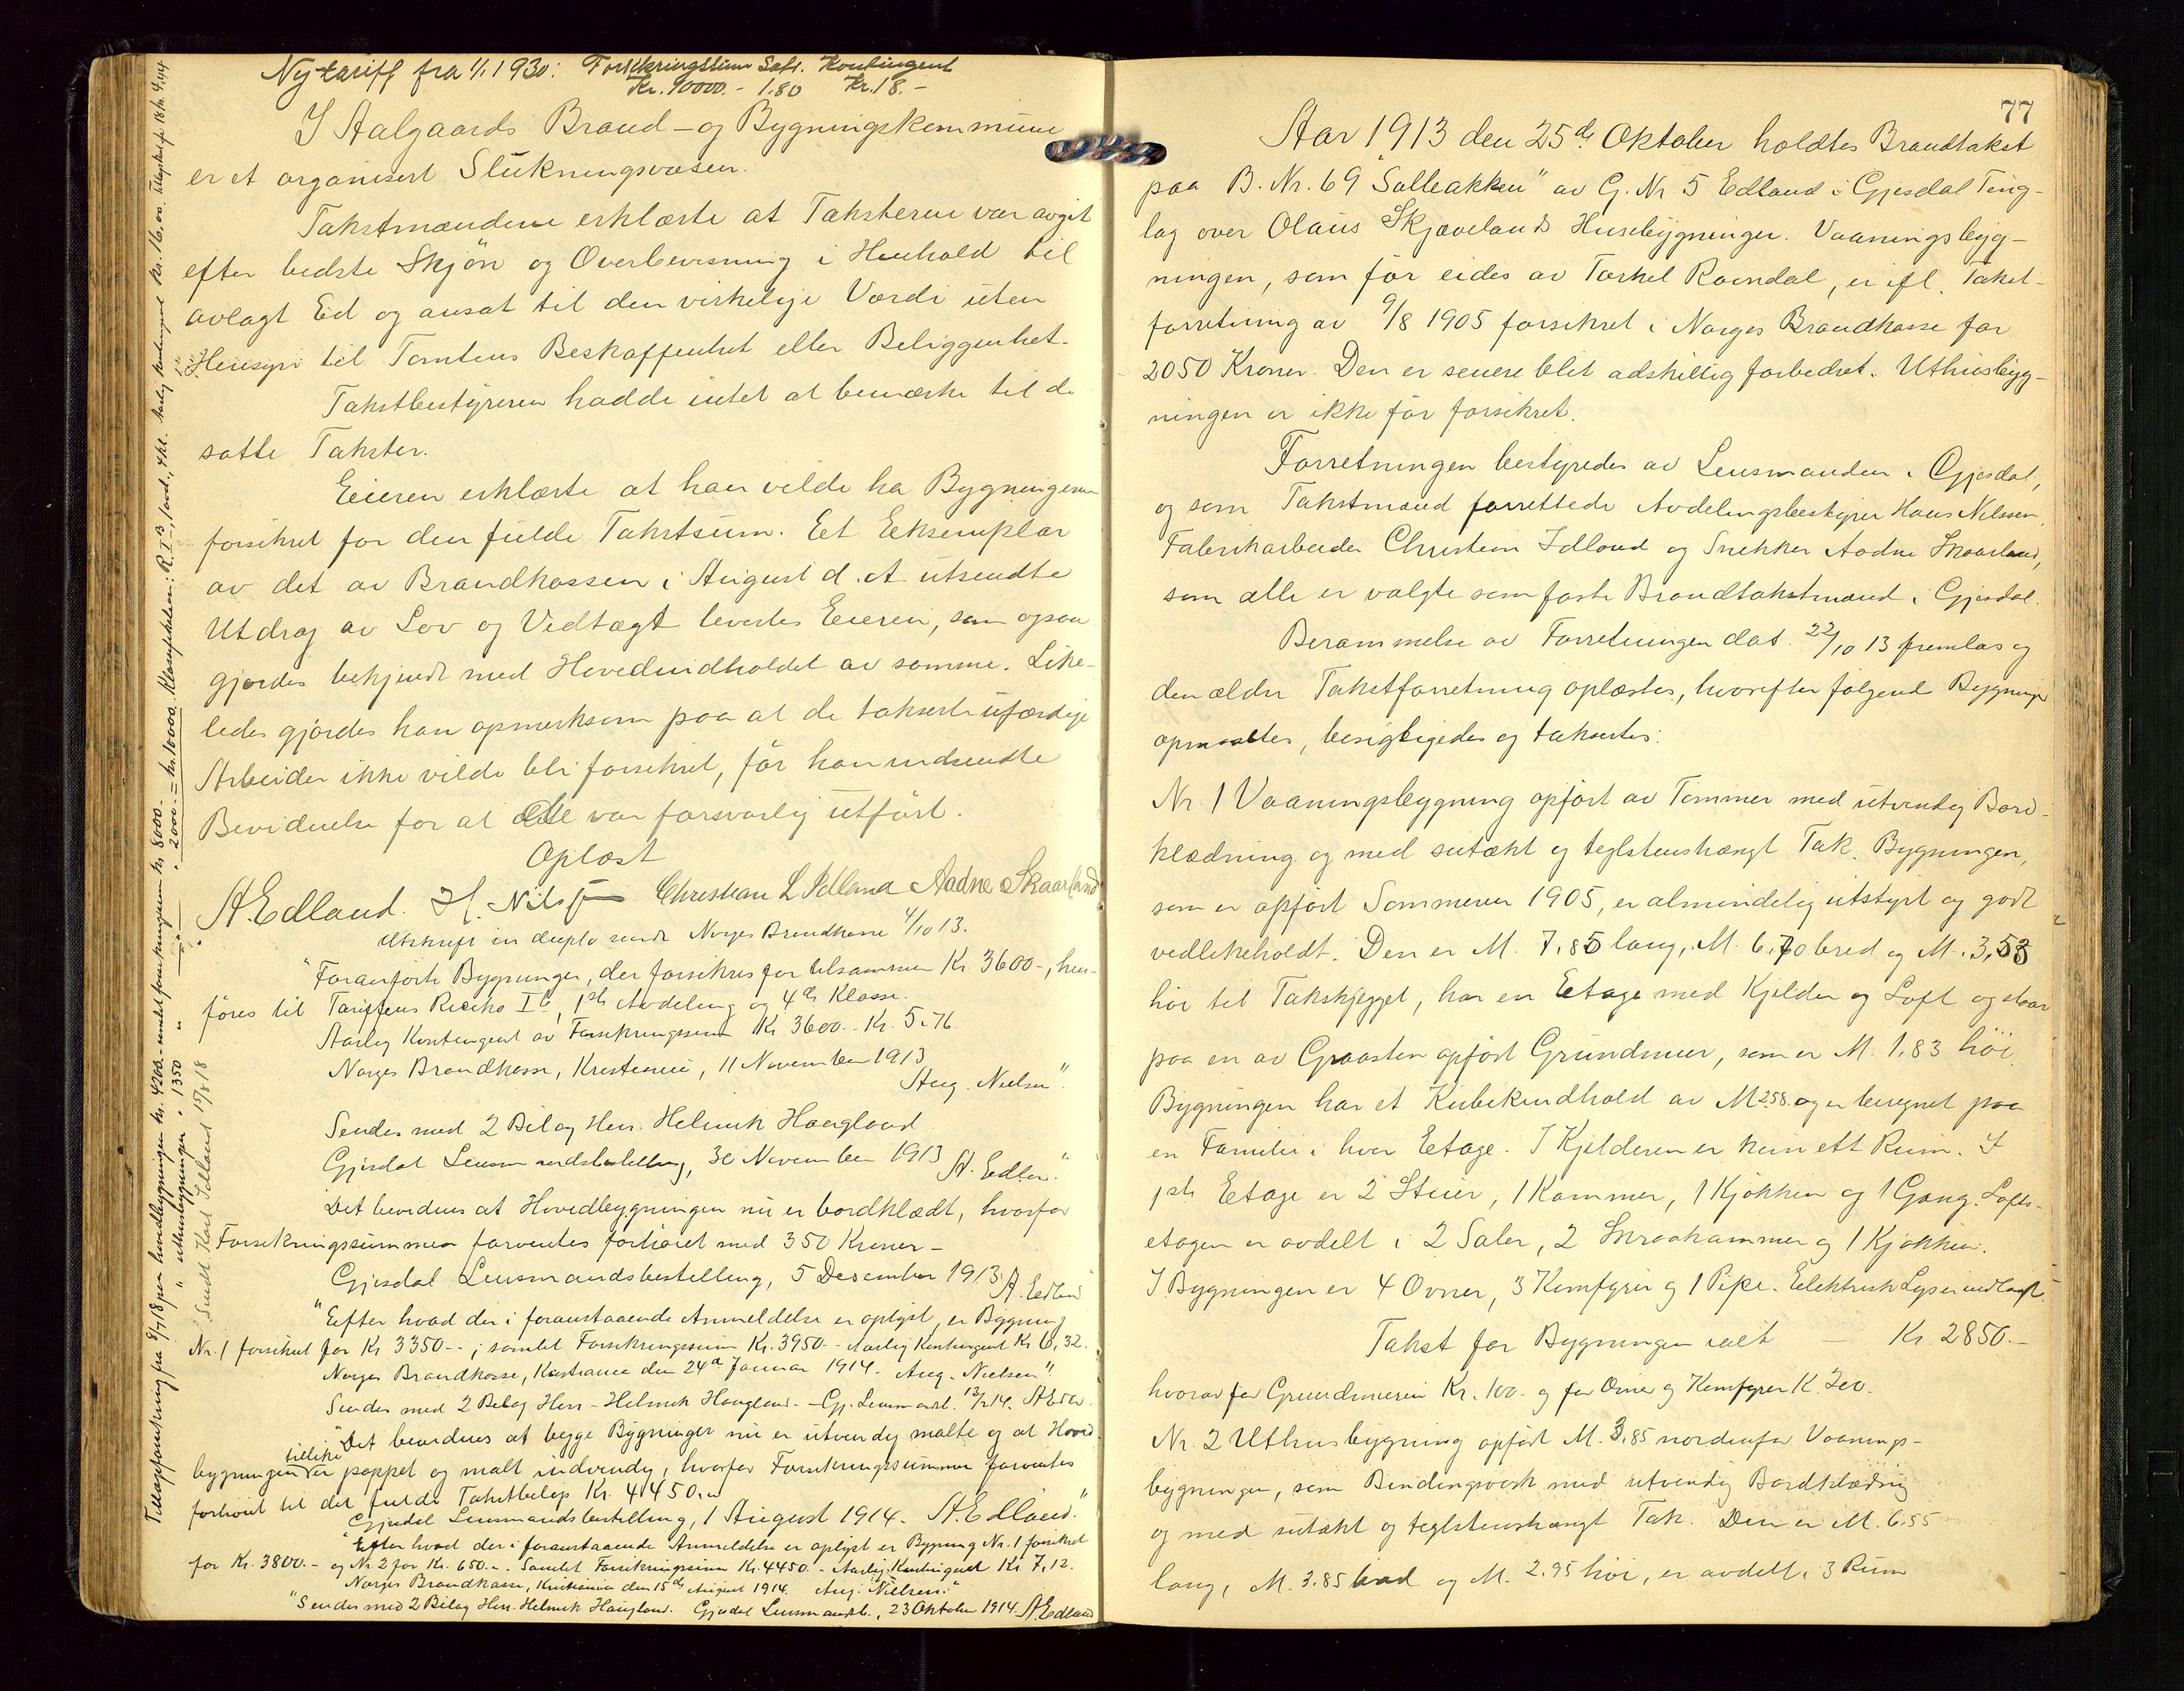 Ny tariff fra 1/1 1930: Forsikringssum Sats. Kontingent
Kr. 10000.- 1.80 Kr. 18.-
I Aalgaards Brand- og Bygningskommune
er et organisert Slukningsvæsen.
Takstmændene erklærte at Taksterne var avgit
efter bedste Skjøn og Overbevisning i Henhold til
avlagt Ed og ansat til den virkelige Værdi uten
Hensyn til Tomtens Beskaffenhet eller Beliggenhet.
Takstbestyreren hadde intet at bemærke til de
satte Takster.
Eieren erklærte at han vilde ha Bygningerne
forsikret for den fulde Takstsum. Et Eksemplar
av det av Brandkassen i August d. A. utsendte
Utdrag av Lov og Vedtægt levertes Eieren, som ogsaa
gjordes bekjendt med Hovedindholdet av samme. Like-
ledes gjordes han opmerksom paa at de takserte ufærdige
Arbeider ikke vilde bli forsikret, før han indsendte
Bevidnelse for at alle var forsvarlig utført.
Oplæst
A. Edland. H. Nilssen Christian L Idland Aadne Skaarland
Utskrift in duplo sendt Norges Brandkasse 4/10 13.
"Foranførte Bygninger, der forsikres for tilsammen Kr. 3600-, hen-
føres til Tariffens Risiko I b, 1ste Avdeling og 4de Klasse.
Aarlig Kontingent av Forsikringssum Kr 3600.- Kr. 5.76.
Norges Brandkasse, Kristiania, 11 November 1913
Aug. Nielsen".
Sendes med 2 Bilag Herr. Helmik Haugland
Gjesdal Lensmandsbestilling, 30 November 1913 A. Edland."
Det bevidnes at Hovedbygningen nu er bordklædt, hvorfor
Forsikringssummen forventes forhøiet med 350 Kroner-
Gjesdal Lensmandsbestilling, 5 Desember 1913. A. Edland"
"Efter hvad der i foranstaaende Anmeldelse er oplyst, er Bygning
Nr. 1 forsikret for Kr 3350.-; samlet Forsikringssum Kr. 3950.- Aarlig Kontingent Kr 6,32.
Norges Brandkasse, Kristiania den 24de Januar 1914. Aug. Nielsen"
Sendes med 2 Bilag Herr Helmik Haugland. - Gj. Lensmandsb. 13/2 14. A Edland
"Det bevidnes at begge Bygninger nu er utvendig malte og at Hoved-
bygningen tillike er pappet og malt indvendig, hvorfor Forsikringssummen forventes
forhøiet til det fulde Takstbeløp Kr. 4450.-
Gjesdal Lensmandsbestilling, 1 August 1914. A. Edland."
"Efter hvad der i foranstaaende Anmeldelse er oplyst er Bygning Nr. 1 forsikret
for Kr. 3800.- og Nr. 2 for Kr. 650.-. Samlet Forsikringssum Kr. 4450.- Aarlig Kontingent Kr 7,12.
Norges Brandkasse, Kristiania den 15de August 1914. Aug. Nielsen."
"Sendes med 2 Bilag Herr Helmik Haugland. Gjesdal Lensmandsb., 23 Oktober 1914. A Edland
Tillægsforsikring fra 9/7 18 paa hovedbygningen kr. 4200- samlet forsikringssum kr 8000.
" uthusbygningen " 1350 " " 2000. = kr. 10000. Klassifikation: R. I B, 1 avd., 4 kl. Aarlig kontingent Kr. 16,00.
Sendt Karl Idland 15/8 18
77
Aar 1913 den 25de Oktober holdtes Brandtakst
paa B. Nr. 69 "Solbakken" av G. Nr 5 Edland i Gjesdal Ting-
lag over Olaus Skjævelands Husebygninger. Vaaningsbyg-
ningen, som før eides av Torkel Ravndal, er ifl. Takst-
forretning av 9/8 1905 forsikret i Norges Brandkasse for
2050 Kroner. Den er senere blit adskillig forbedret. Uthusbyg-
ningen er ikke før forsikret.
Forretningen bestyredes av Lensmanden i Gjesdal,
og som Takstmænd forrettede Avdelingsbestyrer Hans Nilssen,
Fabrikarbeider Christian Idland og Snekker Aadne Skaarland,
som alle er valgte som faste Brandtakstmænd i Gjesdal.
Berammelse av Forretningen dat. 22/10 13 fremlas og
den ældre Takstforretning oplæstes, hvorefter følgende Bygninger
opmaaltes, besigtigedes og takseres:
Nr 1 Vaaningsbygning opført av Tømmer med utvendig Bord-
klædning og med sutækt og teglstenshængt Tak. Bygningen,
som er opført Sommeren 1905, er almindelig utstyrt og godt
vedlikeholdt. Den er M. 7,85 lang, M. 6,70 bred og M. 3,53
høi til Takskjegget, har en Etage med Kjelder og Loft og staar
paa en av Graasten opført Grundmur, som er M. 1,83 høi.
Bygningen har et Kubikindhold av M 258. og er beregnet paa
en Familie i hver Etage. I Kjelderen er kun ett Rum. I
1ste Etage er 2 Stuer, 1 Kammer, 1 Kjøkken og 1 Gang. Lofts-
etagen er avdelt i 2 Saler, 2 Skraakammer og 1 Kjøkken.
I Bygningen er 4 Ovner, 3 Komfyrer og 1 Pipe. Elektrisk Lys er indlagt.
Takst for Bygningen ialt — Kr. 2850.-
hvorav for Grundmuren Kr. 100.- og for Ovner og Komfyrer K. 200.
Nr. 2 Uthusbygning opført M. 3,85 nordenfor Vaanings-
bygningen, som Bindingsverk med utvendig Bordklædnig
og med sutækt og teglstenshængt Tak. Den er M. 6.55
lang, M. 3.85 bred og M. 2.95 høi, er avdelt i 3 Rum